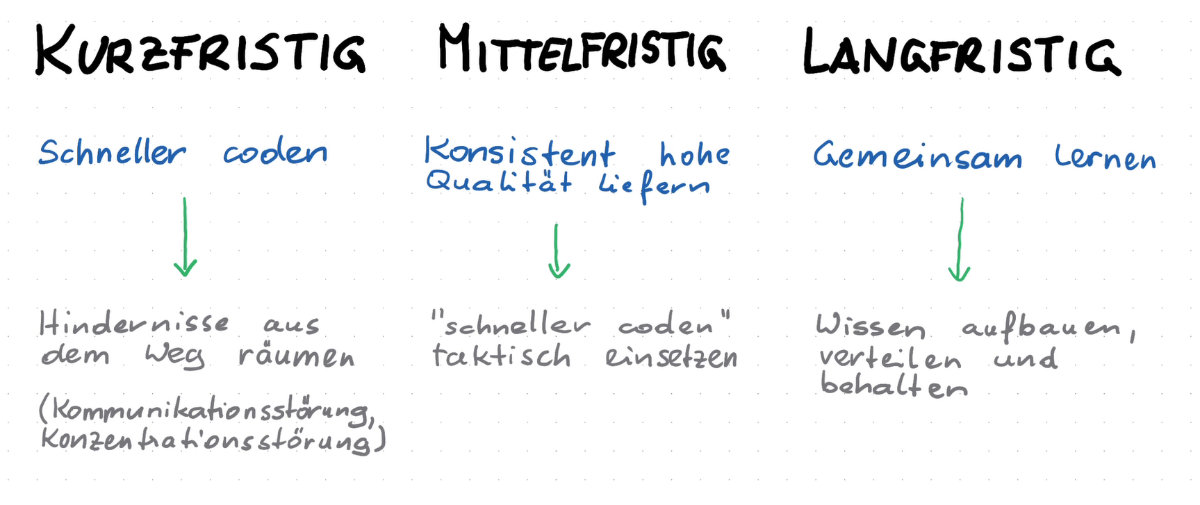 KURZFRISTIG
Schneller coden
Hindernisse aus
dem Weg räumen
(Kommunikationsstörung,
Konzentrationsstörung)
MITTELFRISTIG
Konsistent hohe
Qualität liefern
"schneller coden"
taktisch einsetzen
LANGFRISTIG
Gemeinsam lernen
Wissen aufbauen,
verteilen und
behalten